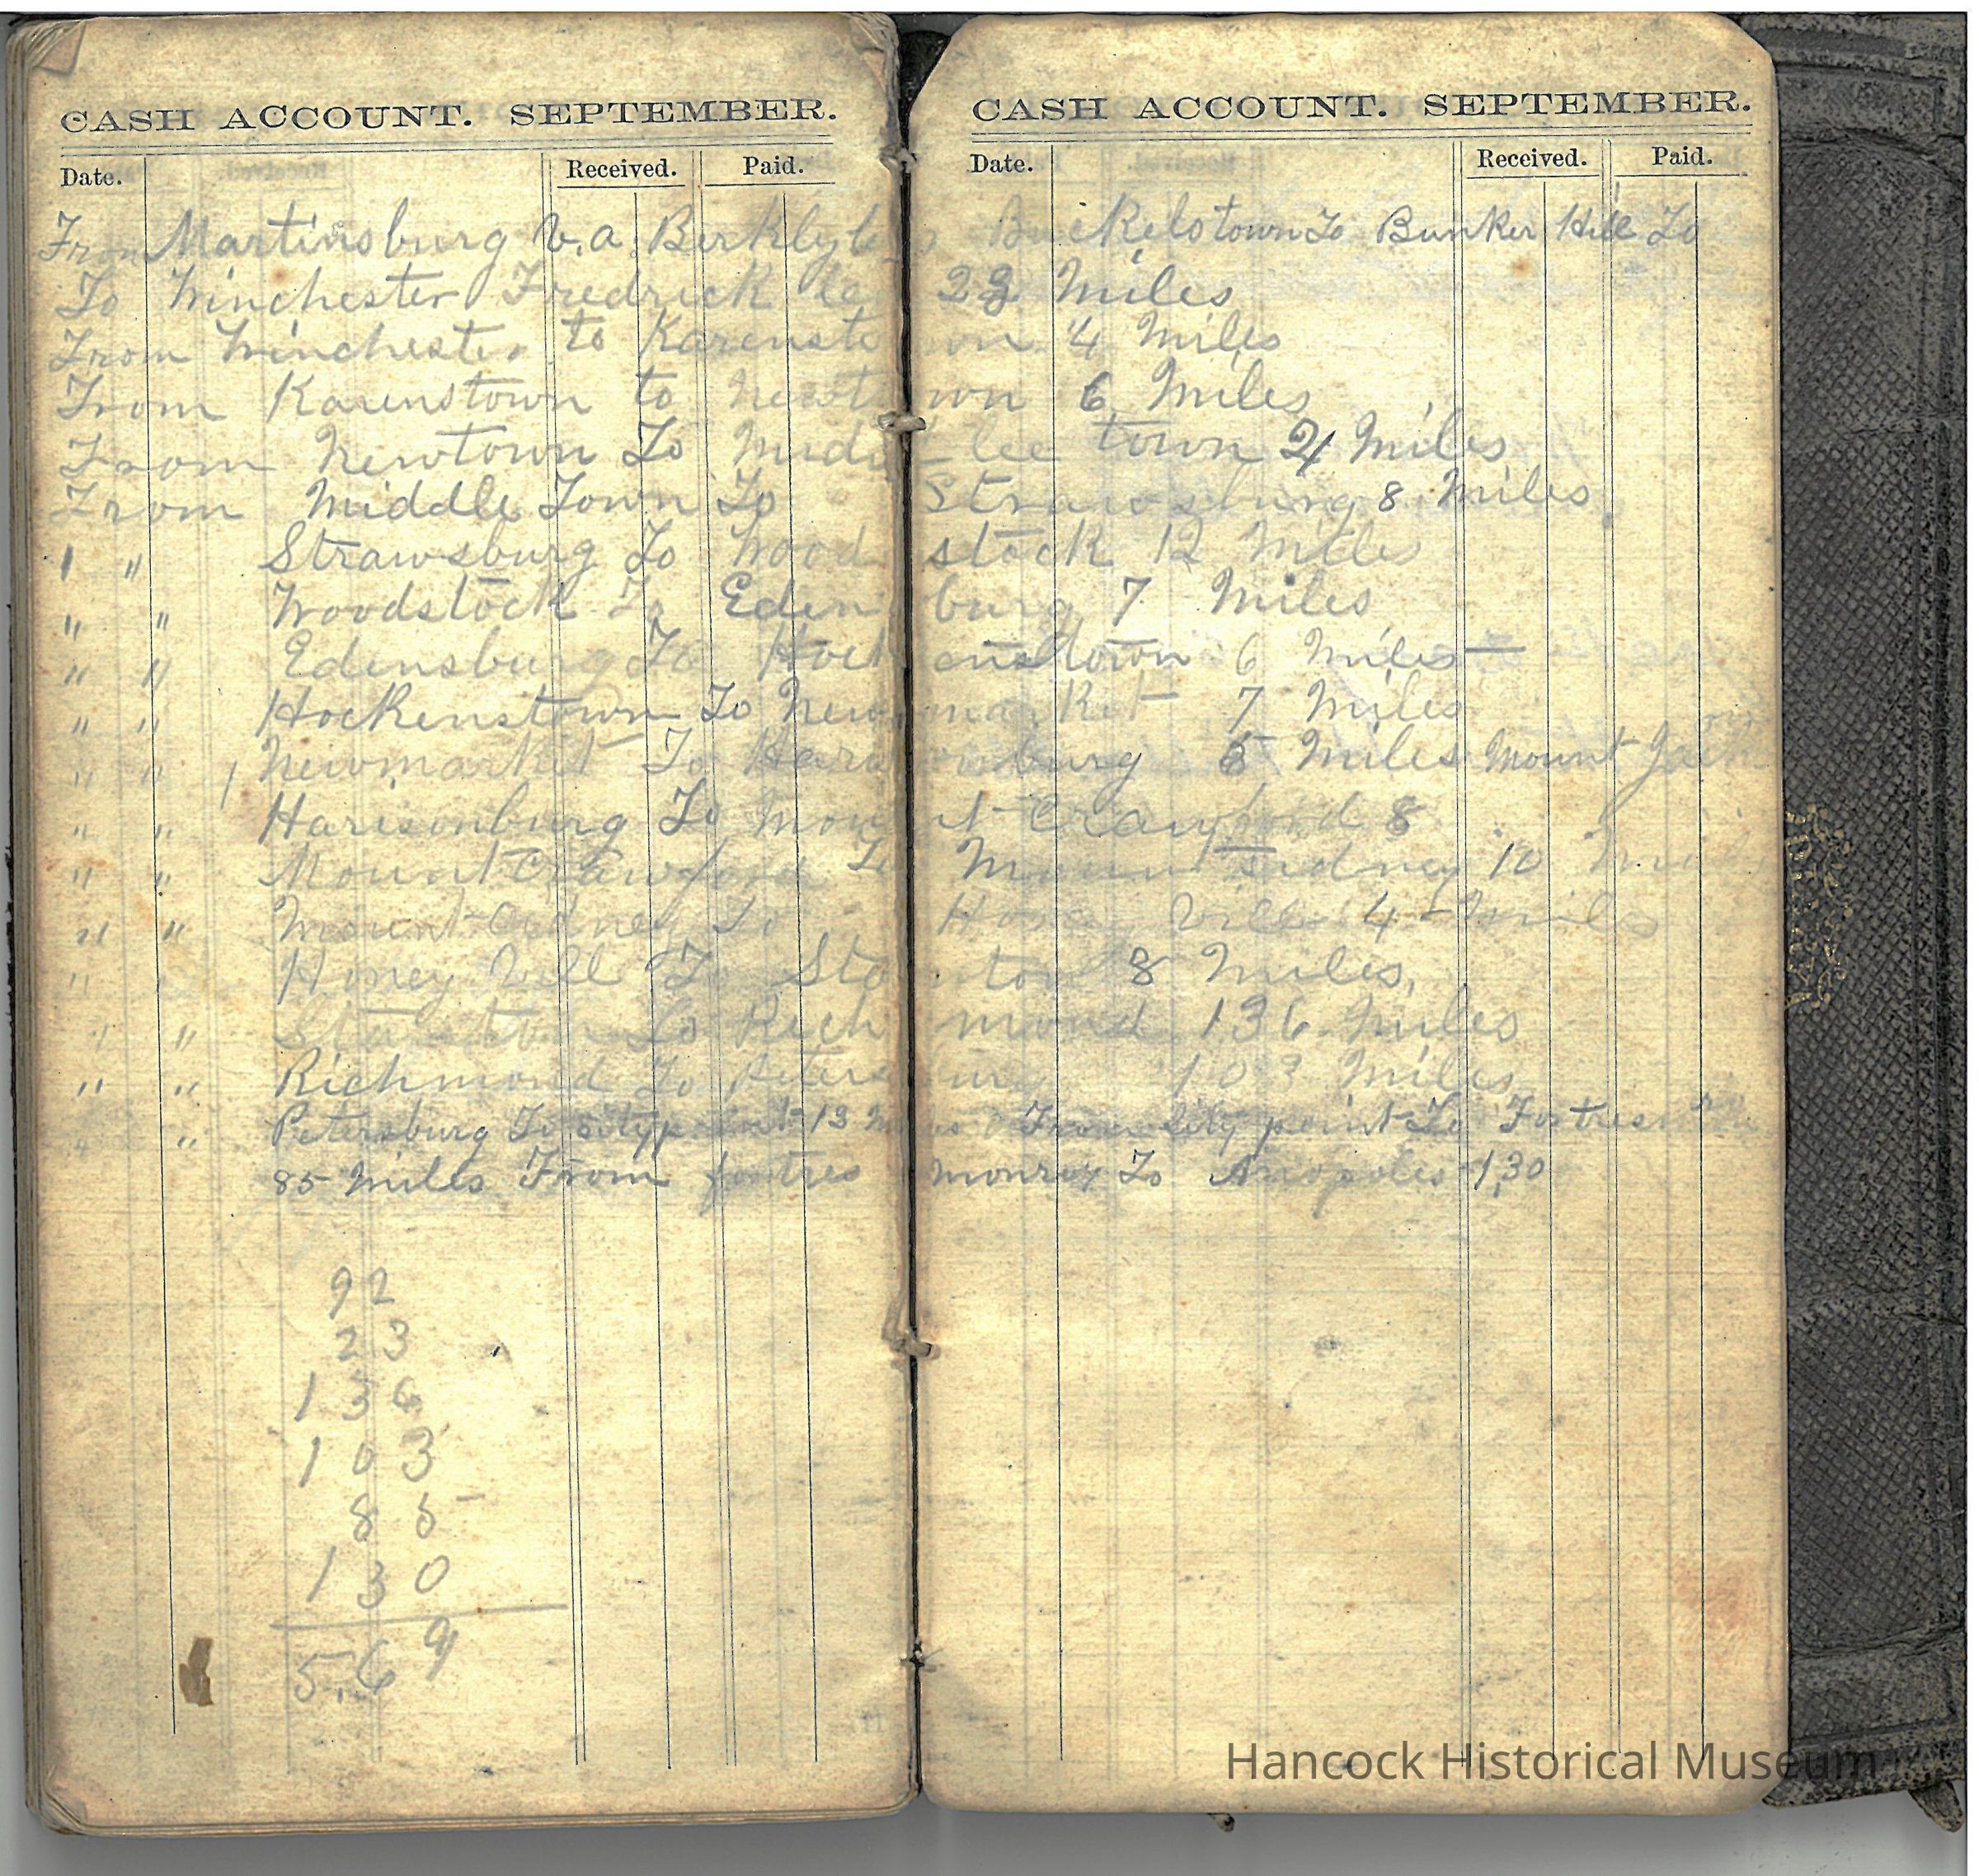 CASH ACCOUNT. SEPTEMBER. CASH ACCOUNT. SEPTEMBER.
Date. Received. Paid. Date. Received. Paid.
From Martinsburg V.a. Berkly Buckelstown To Bunker Hill To
To Winchester Fredrick 23 Miles
From Winchester to Karenstown 4 Miles
From Karenstown to Newtown 6 Miles
From Newtown To Middleetown 4 Miles
From Middle Town To Strawsburg 8 Miles
" " Strawsburg To Woodstock 12 Miles
" " Woodstock To Edenburg 7 Miles
" " Edensburg To Hockenstown 6 Miles
" " Hockenstown To Newmarket 7 Miles
" " Newmarket To Harisonburg Miles Mount Jackson
" " Harisonburg To Mount Crawford 8
" " Mount Crawford To Mount Sidney 10
" " Mount Sidney To Honey Vill 4 Miles
" Honey Vill To Stanton 8 Miles,
" " Stanton To Richmond 136 Miles
" " Richmond To Petersburg 103 Miles
" " Petersburg To City point 13 Miles From City point To Fortress
85 Miles From fortres monroy To Anopoles 1,30
92
23
136
103
85
130
5,69
Hancock Historical Museum